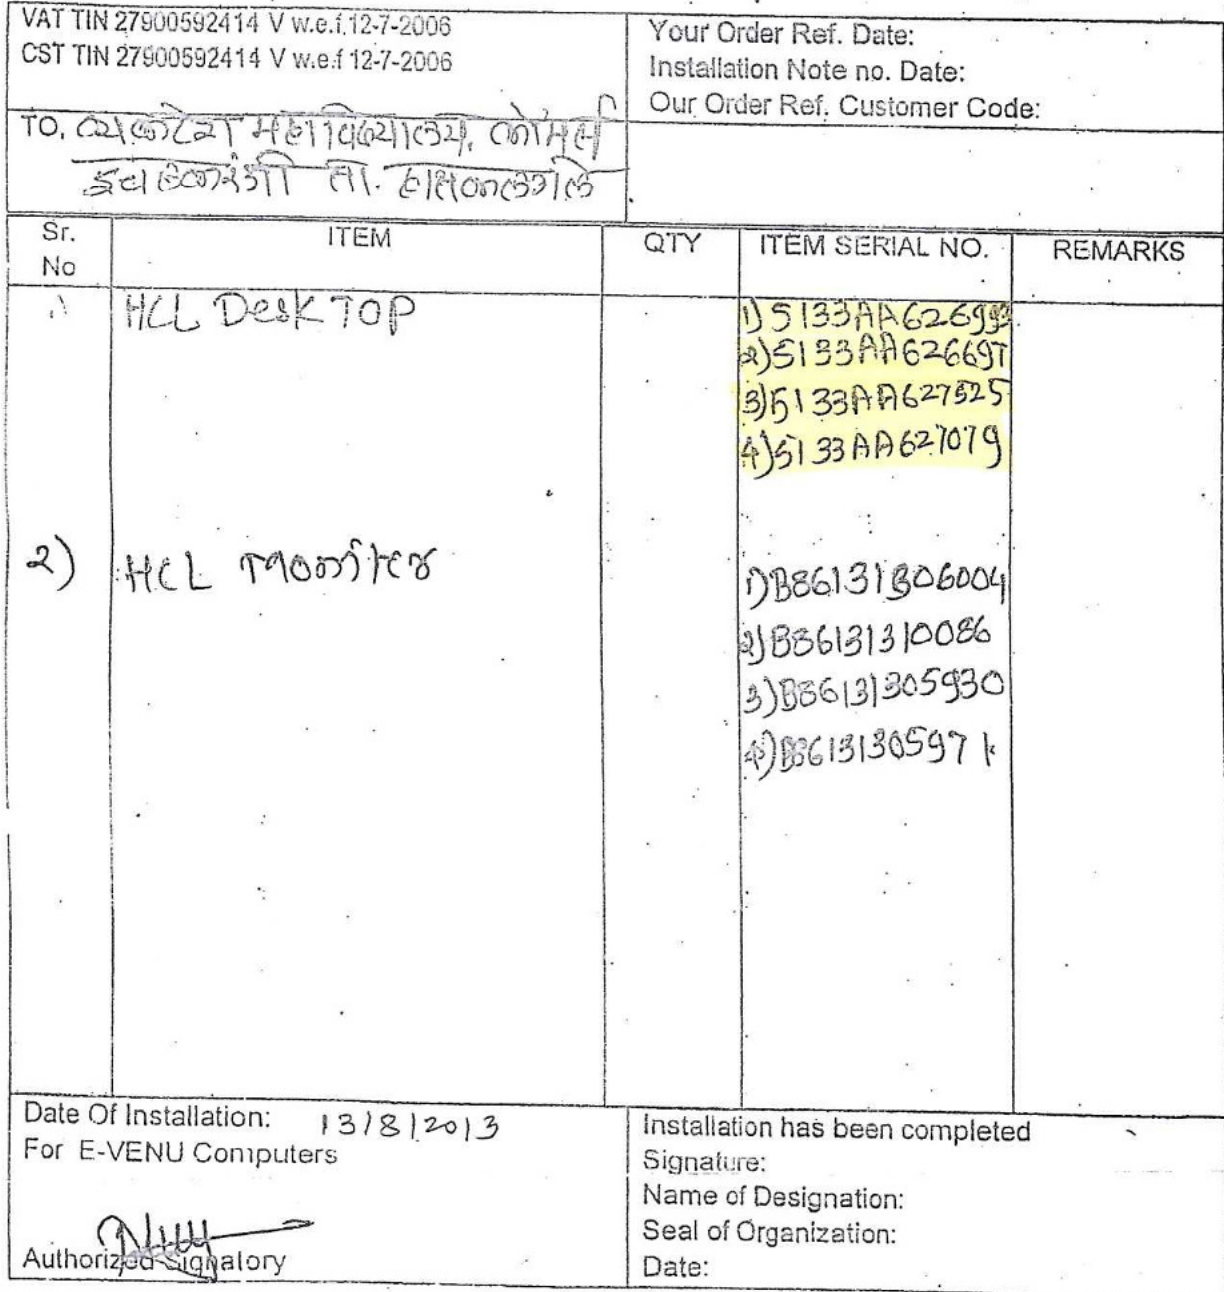 VAT TIN 27900592414 V w.e.f.12-7-2006
CST TIN 27900592414 V w.e.f 12-7-2006
Your Order Ref. Date:
Installation Note no. Date:
Our Order Ref. Customer Code:
TO, महाविद्यालय, कॉमर्स
ता. हातकणंगले
Sr. No
ITEM
QTY
ITEM SERIAL NO.
REMARKS
1) HCL DeskTOP
1) 5133AA626993
2) 5133AA626697
3) 5133AA627525
4) 5133AA627079
2) HCL Moniter
1) B86131306004
2) B86131310086
3) B86131305930
4) B8613130597
Date Of Installation: 13/8/2013
For E-VENU Computers
Authorized Signatory
Installation has been completed
Signature:
Name of Designation:
Seal of Organization:
Date: